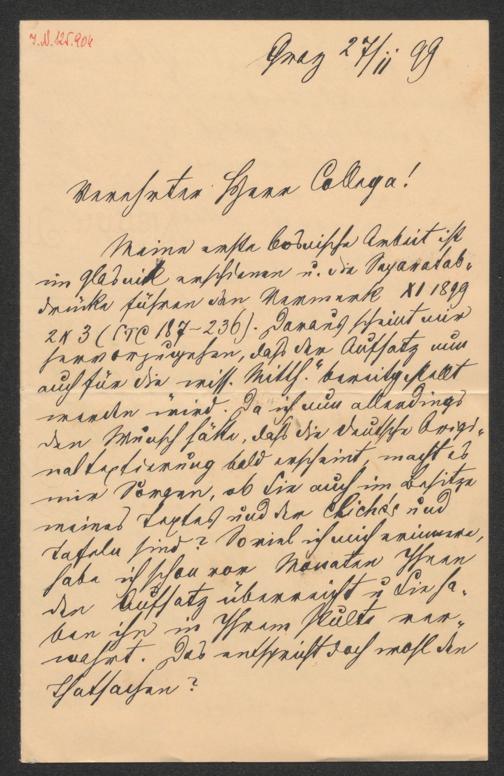 J.N. 125.904
Graz 27/II 99
Verehrter Herr Collega!
Meine erste bosnische Arbeit ist
im Glasnik erschienen u. die Separatab-
drücke führen den Vermerk XI 1899
2 u 3 (CTC 187-236). Daraus scheint mir
hervorzugehen, daß der Aufsatz nun
auch für die wiss. Mitth." bereitgestellt
werden wird. Da ich nun allerdings
den Wunsch hätte, daß die deutsche Origi-
naltextierung bald erscheint, macht es
mir Sorgen, ob Sie auch im Besitze
meines Textes und der Clichés und
Tafeln sind? Soviel ich mich erinnere,
habe ich schon vor Monaten Ihnen
den Aufsatz überreicht u. Sie ha-
ben ihn in Ihrem Pulte ver-
wahrt. Das entspricht doch wohl den
Thatsachen?